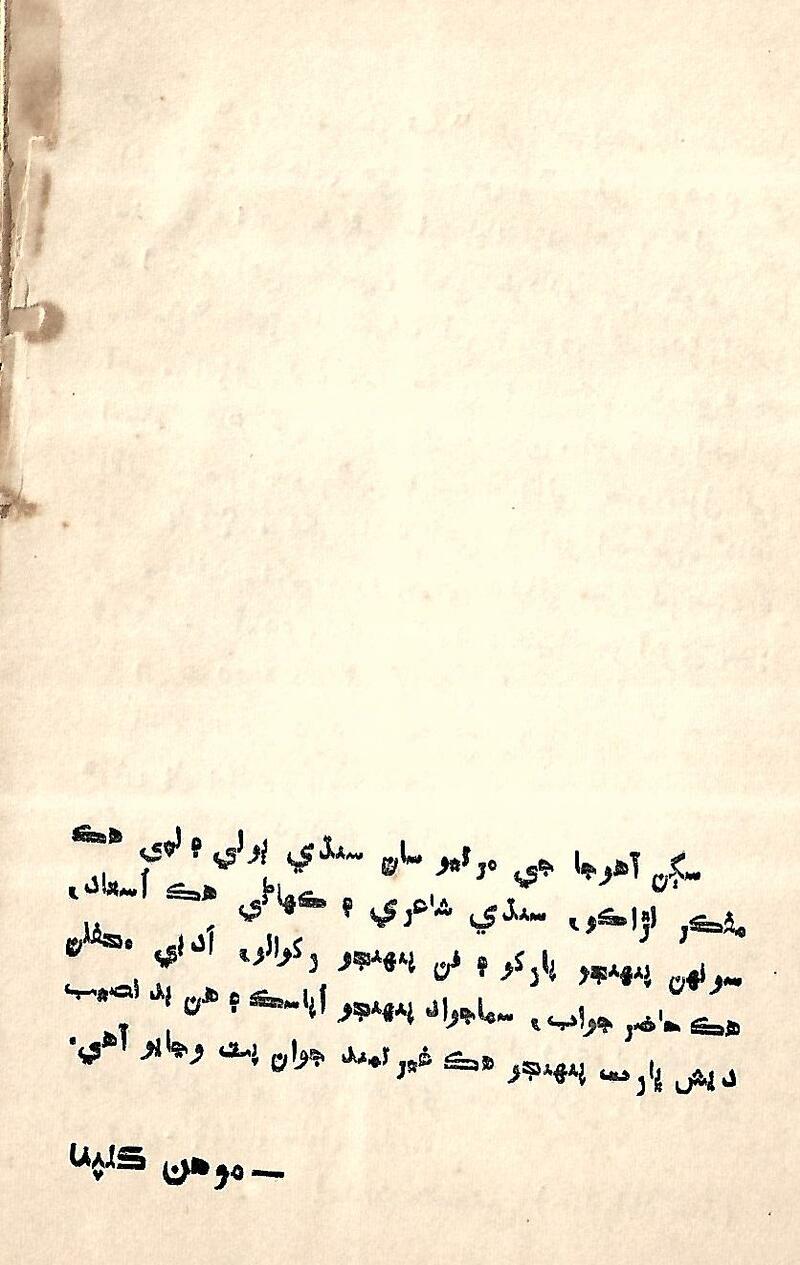 سڳن آهوجا جي مرتيو سان سنڌي ٻولي ۽ لپي هڪ
مفڪر لڙاڪو، سنڌي شاعري ۽ ڪهاڻي هڪ اُستاد،
سونهن پنهنجو پارکو ۽ فن پنهنجو رکوالو، اَدبي محفلن
هڪ حاضر جواب، سماجواد پنهنجو اُپاسڪ ۽ هن بد نصيب
ديش ڀارت پنهنجو هڪ غيرتمند جوان پٽ وڃايو آهي.
— موهن ڪلپنا